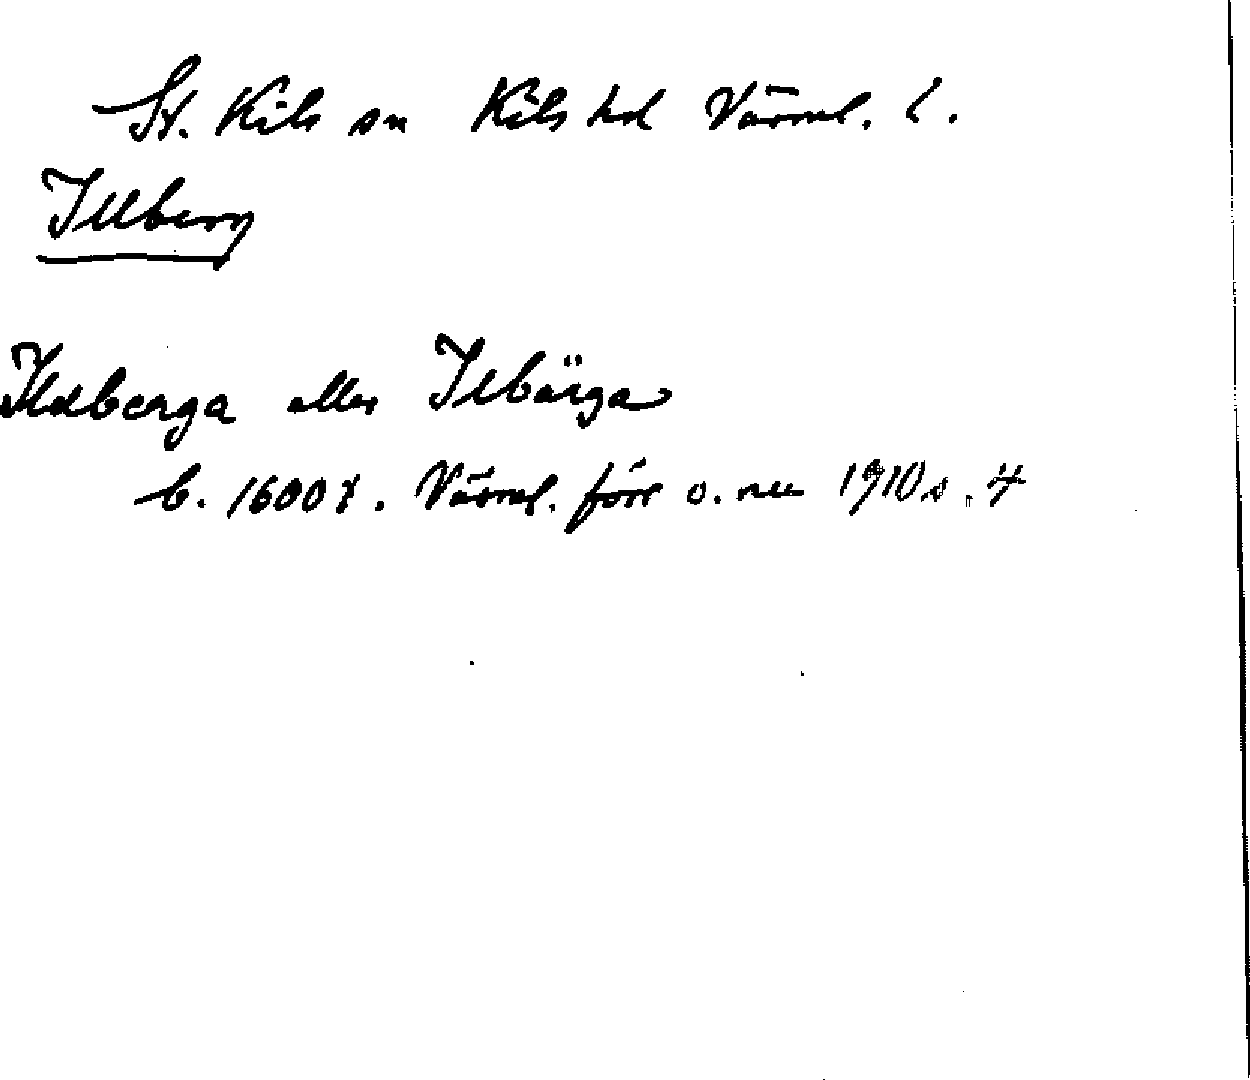 St. Kils sn Kils hd Värml. l.
Illberg
Ildberga eller Ilbärga
b. 1600 t. Värml. förr o. nu 1910 s. 4